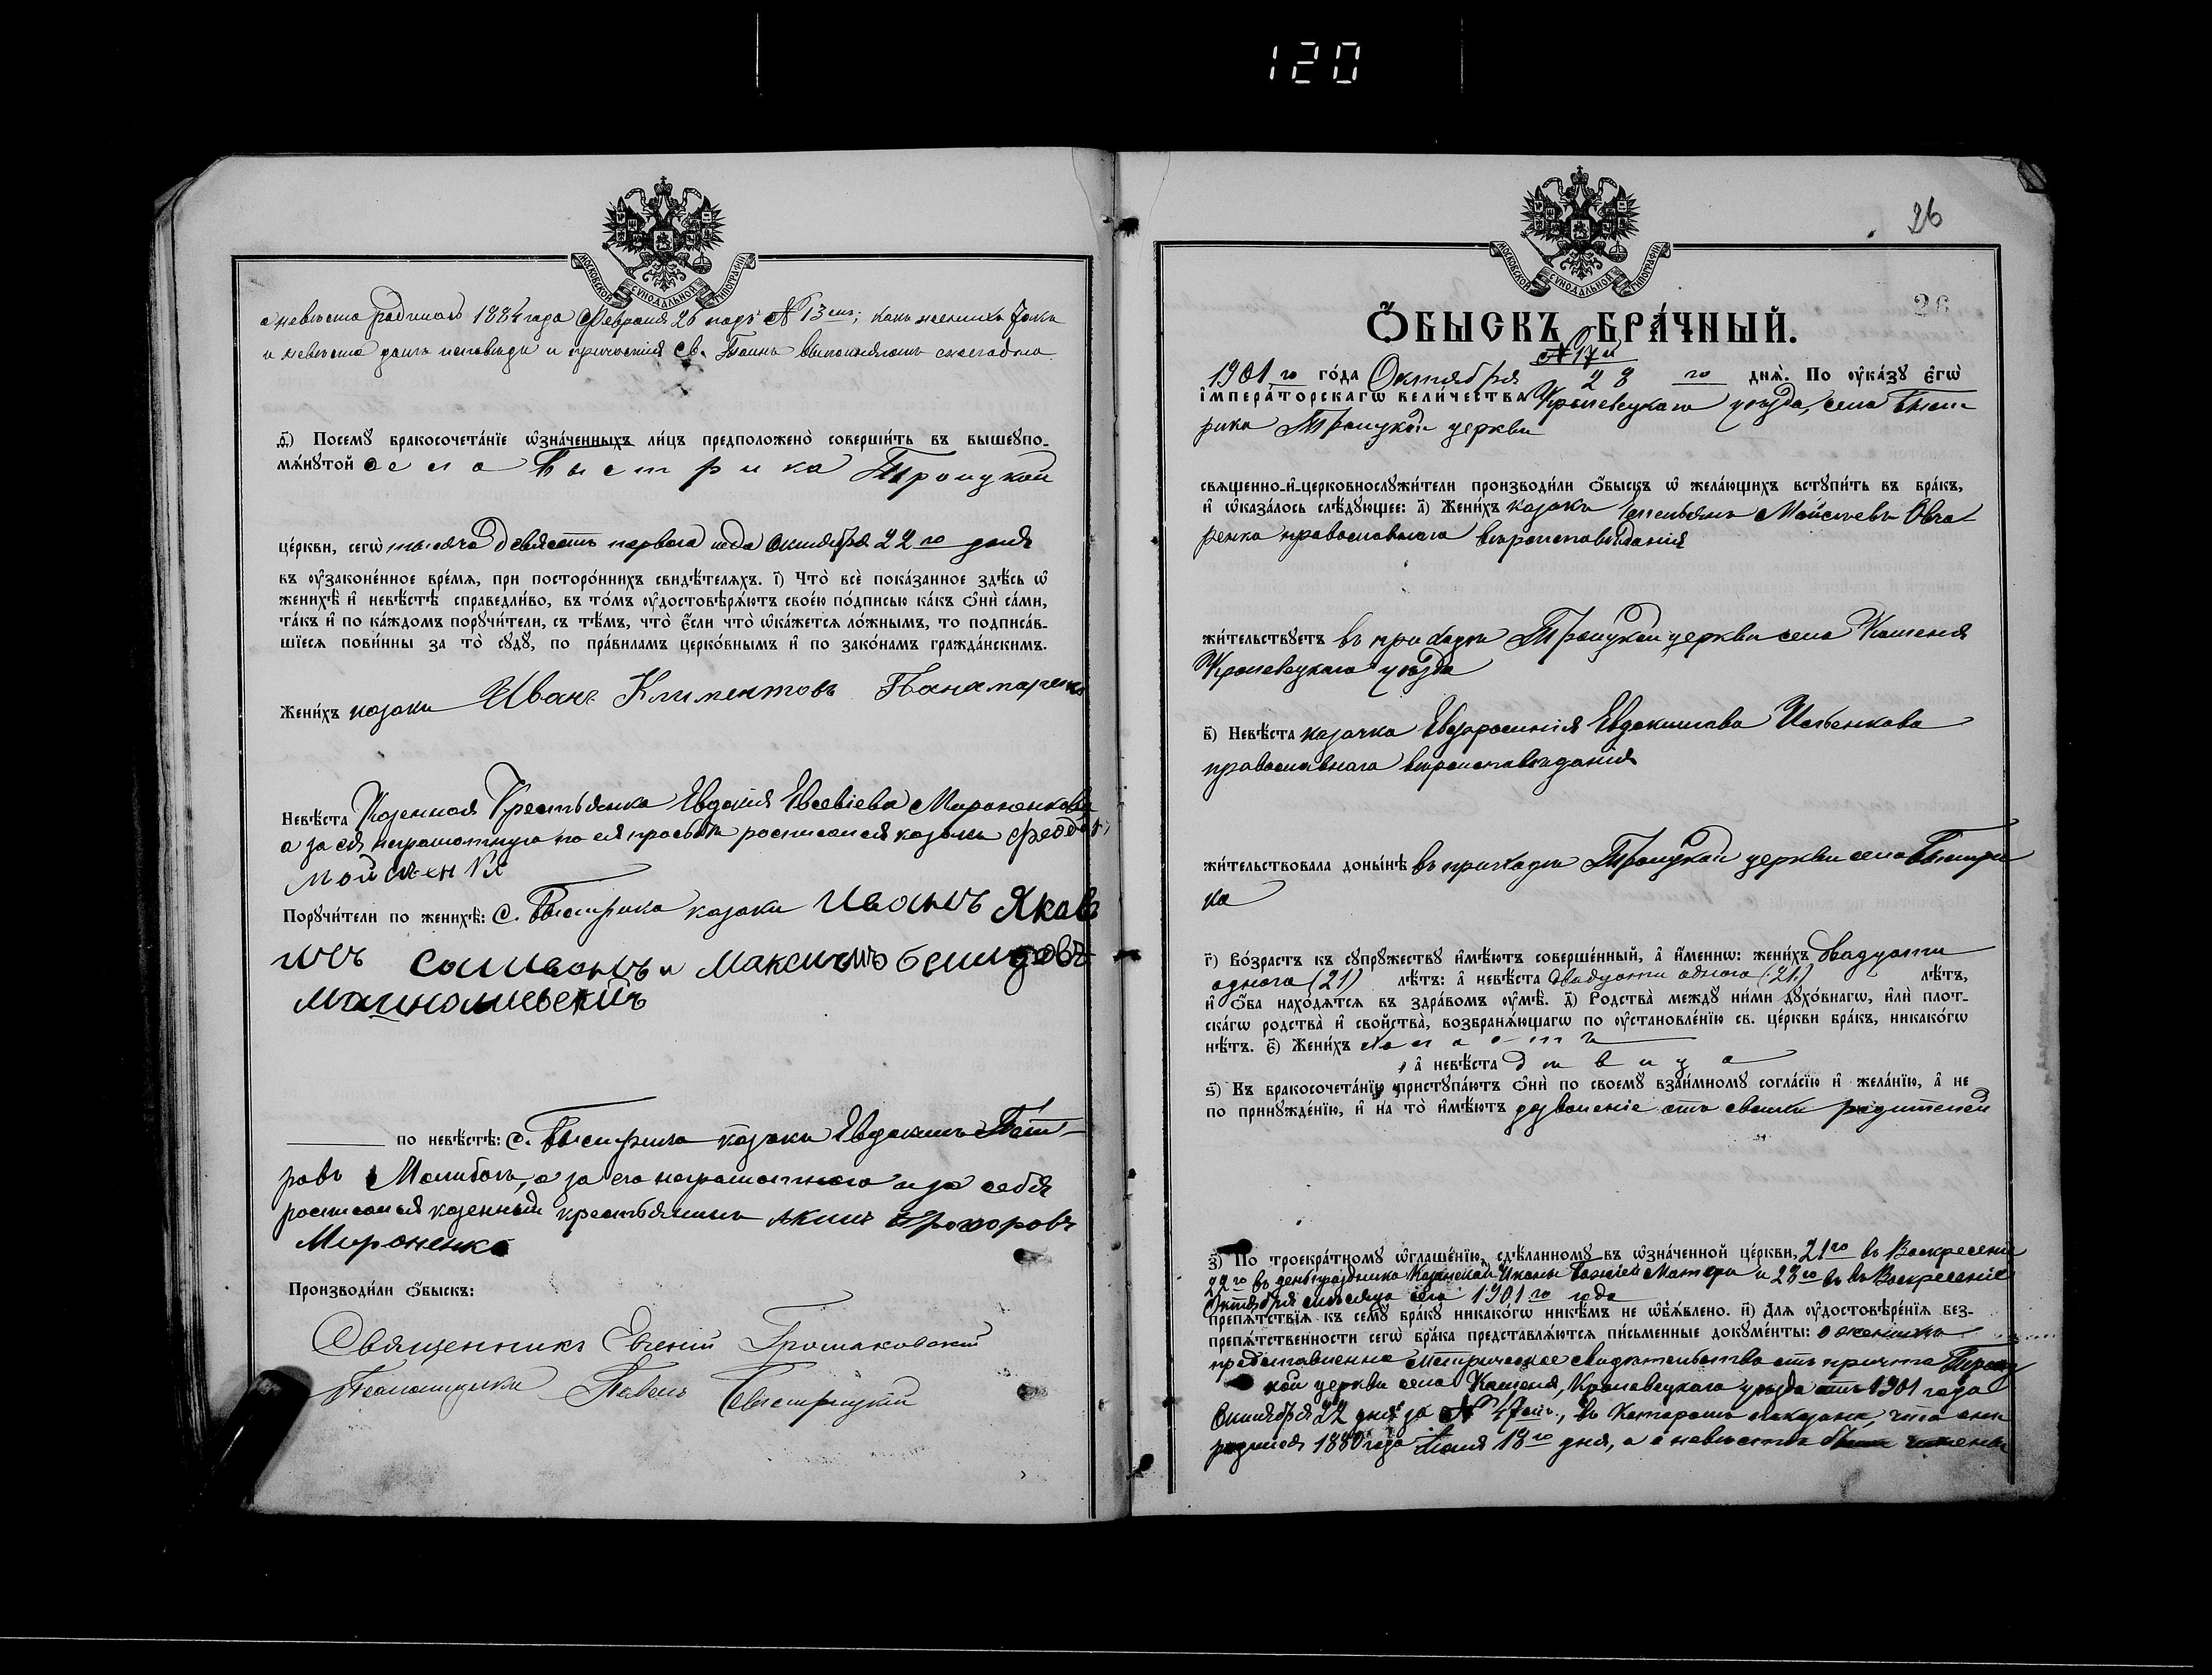 120
МОСКОВСКОЙ СѴНОДАЛЬНОЙ ТИПОГРАФІИ
а невѣста родилась 1884 года Февраля 26 подъ № 13 емъ; какъ женихъ такъ
и невѣста долгъ исповѣди и причастія Св. Таинъ выполняютъ ежегодно.
ѳ҃) Посемꙋ бракосочета́нїе ѡ҆зна́ченныхъ ли́цъ предположено̀ соверши́ть въ вышеꙋпо-
мѧ́нꙋтой села Быстрика Троицкой
це́ркви, сегѡ̀ тысяча девятьсотъ перваго года Октября 22 го дня
въ ᲂу҆зако́ненное вре́мѧ, при посторо́ннихъ свидѣ́телѧхъ. і҃) Что̀ всѐ пока́занное здѣ́сь ѡ҆
женихѣ̀ и҆ невѣ́стѣ справедли́во, въ то́мъ ᲂу҆достовѣрѧ́ютъ свое́ю по́дписью ка́къ ѻ҆нѝ са́ми,
та́къ и҆ по ка́ждомъ порꙋчи́тели, съ тѣ́мъ, что̀ є҆́сли что̀ ѡ҆ка́жетсѧ ло́жнымъ, то подписа́в-
шїесѧ пови́нны за то̀ сꙋдꙋ̀, по пра́виламъ церко́внымъ и҆ по зако́намъ гражда́нскимъ.
Жени́хъ козакъ Иванъ Климентовъ Панамаренко
Невѣ́ста Казенная Крестьянка Евдокія Евсевіева Мироненкова
а за ея неграмотную по ея просьбѣ росписался козакъ Феодоръ
Мойсѣенко
Порꙋчи́тели по женихѣ̀: С. Быстрика козаки Иванъ Яков
и Максимъ
по невѣ́стѣ: С. Быстрика козакъ Евдокимъ Пет-
ровъ а за его неграмотного и за себя
росписался казенный крестьянинъ Акимъ Прохоровъ
Мироненко
Производи́ли ѻ҆́быскъ:
Священникъ Евгеній Громаковскій
Псаломщикъ Павелъ Быстрицкій
26
МОСКОВСКОЙ СѴНОДАЛЬНОЙ ТИПОГРАФІИ
26
Ѻ҆́БЫСКЪ БРА́ЧНЫЙ.
№ 17 й
1901 го го́да Октября 28 го днѧ̀. По ᲂу҆ка́зꙋ є҆гѡ̀
і҆мпера́торскагѡ вели́чества Кролевецкаго уѣзда, села Быст
рика Троицкой церкви
свѧще́нно-и҆-церковнослꙋжи́тели производи́ли ѻ҆́быскъ ѡ҆ жела́ющихъ встꙋпи́ть въ бра́къ,
и҆ ѡ҆каза́лось слѣ́дꙋющее: а҃) Жени́хъ козакъ Емельянъ Мойсѣевъ Овча-
ренко православнаго вѣроисповѣданія
жи́тельствꙋетъ въ приходѣ Троицкой церкви села Камня
Кролевецкаго уѣзда
в҃) Невѣ́ста козачка Евфросинія Евдокимова
православнаго вѣроисповѣданія
жи́тельствовала доны́нѣ въ приходѣ Троицкой церкви села Быстри
ка
г҃) Во́зрастъ къ сꙋпрꙋ́жествꙋ и҆мѣ́ютъ соверше́нный, а҆ и҆́меннѡ: жени́хъ двадцати
одного (21) лѣ́тъ: а҆ невѣ́ста двадцати одного (21) лѣ́тъ,
и҆ ѻ҆́ба нахо́дѧтсѧ въ здра́вомъ ᲂу҆мѣ̀. д҃) Родства̀ междꙋ̀ ни́ми дꙋхо́внагѡ, и҆лѝ плот-
ска́гѡ родства̀ и҆ сво́йства̀, возбранѧ́ющагѡ по ᲂу҆становле́нїю св. це́ркви бра́къ, никако́гѡ
нѣ́тъ. є҃) Жени́хъ холостъ
, а҆ невѣ́ста дѣвица
ѕ҃) Къ бракосочета́нїю пристꙋпа́ютъ ѻ҆нѝ по своемꙋ̀ взаи́мномꙋ согла́сїю и҆ жела́нїю, а҆ не
по принꙋжде́нїю, и҆ на то̀ и҆мѣ́ютъ дозволеніе отъ своихъ родителей
з҃) По троекра́тномꙋ ѡ҆глаше́нїю, сдѣ́ланномꙋ въ ѡ҆зна́ченной це́ркви, 21 го въ Воскресеніе
22 го въ день праздника Казанской Иконы Божіей Матери и 28 го въ Воскресеніе
Октября мѣсяца сего 1901 го года
препѧ́тствїѧ къ семꙋ̀ бра́кꙋ никако́гѡ никѣ́мъ не ѡ҆бъѧ́влено. и҃) Длѧ ᲂу҆достовѣре́нїѧ без-
препѧ́тственности сегѡ̀ бра́ка представлѧ́ютсѧ пи́сьменные докꙋме́нты: о женихѣ
представленно Метрическое свидѣтельство отъ причта Троиц
кой церкви села Камня, Кролевецкаго уѣзда отъ 1901 года
Октября 22 дня за № 47 мъ, въ которомъ показано, что онъ
родился 1880 года Іюля 18 го дня, а о невѣстѣ